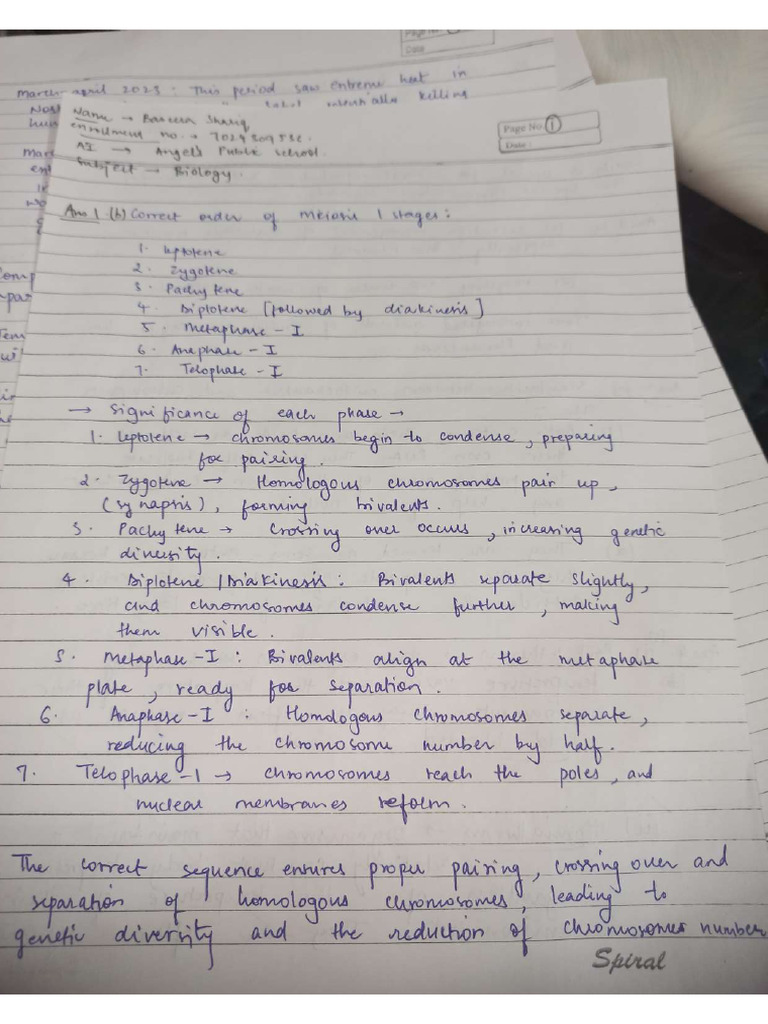 Page No.
Date
March-April 2023 : This period saw extreme heat in
killing
Name → Bareera Shariq
enrollment no. →
AI → Angel's Public school.
Subject → Biology.
Page No. 1
Date :
Ans 1. (b) Correct order of meiosis 1 stages:
1. Leptotene
2. Zygotene
3. Pachytene
4. Diplotene [followed by diakinesis]
5. Metaphase - I
6. Anaphase - I
7. Telophase - I
→ Significance of each phase →
1. Leptotene → chromosomes begin to condense, preparing
for pairing.
2. Zygotene → Homologous chromosomes pair up,
(synapsis), forming bivalents.
3. Pachytene → Crossing over occurs, increasing genetic
diversity.
4. Diplotene / Diakinesis : Bivalents separate slightly,
and chromosomes condense further, making
them visible.
5. Metaphase - I : Bivalents align at the metaphase
plate, ready for separation.
6. Anaphase - I : Homologous chromosomes separate,
reducing the chromosome number by half.
7. Telophase - 1 → chromosomes reach the poles, and
nuclear membranes reform.
The correct sequence ensures proper pairing, crossing over and
separation of homologous chromosomes, leading to
genetic diversity and the reduction of chromosomes number
Spiral